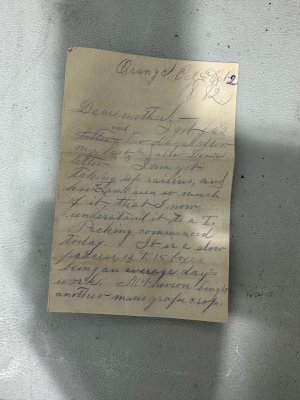 Orange Cal Oct 2
82
Dear mother, — I got pa's
letter and few days after
letter. I am yet
taking up raisins, and
have seen so much
of it, that I now
understand it to a T.
Packing commenced
today. It is a slow
process 12 to 15 boxes
being an average day's
work. McPherson bought
another man's grape crop.